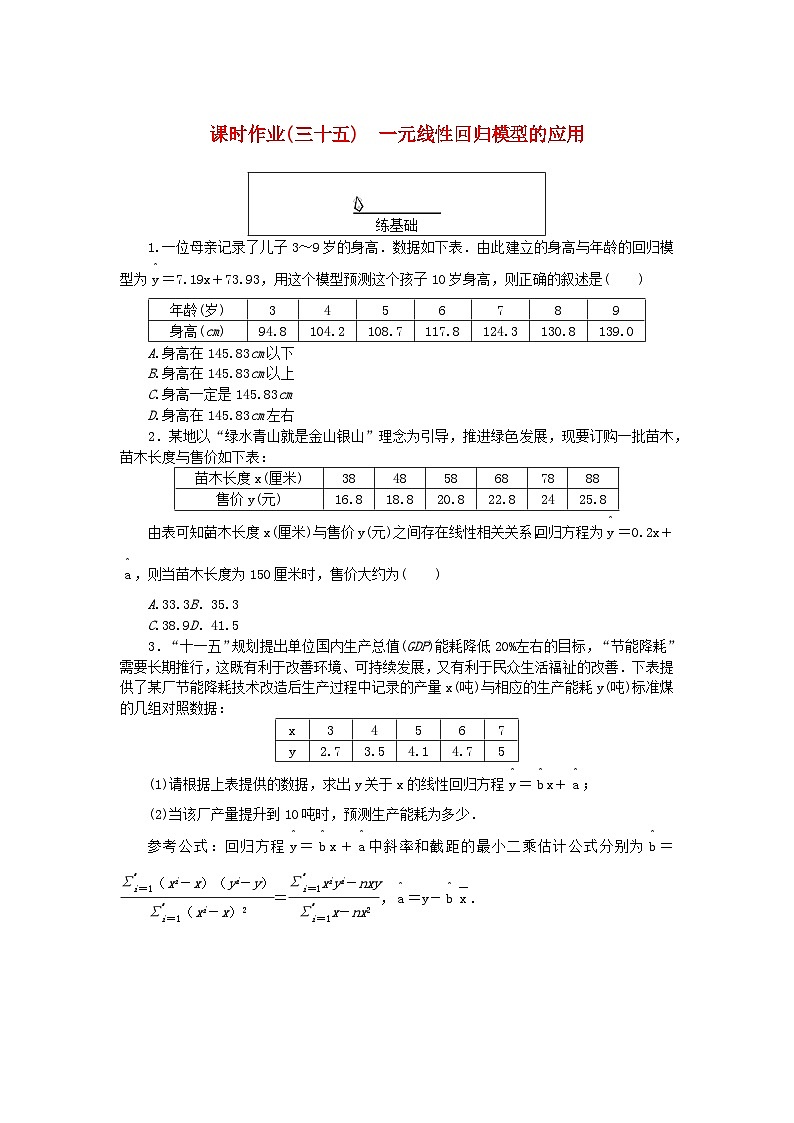 课时作业(三十五)　一元线性回归模型的应用
练基础
1.一位母亲记录了儿子3～9岁的身高.数据如下表.由此建立的身高与年龄的回归模
型为ŷ=7.19x+73.93,用这个模型预测这个孩子10岁身高,则正确的叙述是(　　)
年龄(岁) 3 4 5 6 7 8 9
身高(cm) 94.8 104.2 108.7 117.8 124.3 130.8 139.0
A.身高在145.83cm以下
B.身高在145.83cm以上
C.身高一定是145.83cm
D.身高在145.83cm左右
2.某地以“绿水青山就是金山银山”理念为引导,推进绿色发展,现要订购一批苗木,
苗木长度与售价如下表:
苗木长度x(厘米) 38 48 58 68 78 88
售价y(元) 16.8 18.8 20.8 22.8 24 25.8
由表可知苗木长度x(厘米)与售价y(元)之间存在线性相关关系回归方程为ŷ=0.2x+
â,则当苗木长度为150厘米时,售价大约为(　　)
A.33.3B. 35.3
C.38.9D. 41.5
3.“十一五”规划提出单位国内生产总值(GDP)能耗降低20%左右的目标,“节能降耗”
需要长期推行,这既有利于改善环境、可持续发展,又有利于民众生活福祉的改善.下表提
供了某厂节能降耗技术改造后生产过程中记录的产量x(吨)与相应的生产能耗y(吨)标准煤
的几组对照数据:
x 3 4 5 6 7
y 2.7 3.5 4.1 4.7 5
(1)请根据上表提供的数据,求出y关于x的线性回归方程ŷ=b̂x+â;
(2)当该厂产量提升到10吨时,预测生产能耗为多少.
参考公式:回归方程ŷ=b̂x+â中斜率和截距的最小二乘估计公式分别为b̂=
Σⁿi=1(xi-x)(yi-y)/Σⁿi=1(xi-x)2=Σⁿi=1xiyi-nxy/Σⁿi=1x-nx2,â=y-b̂x̄.